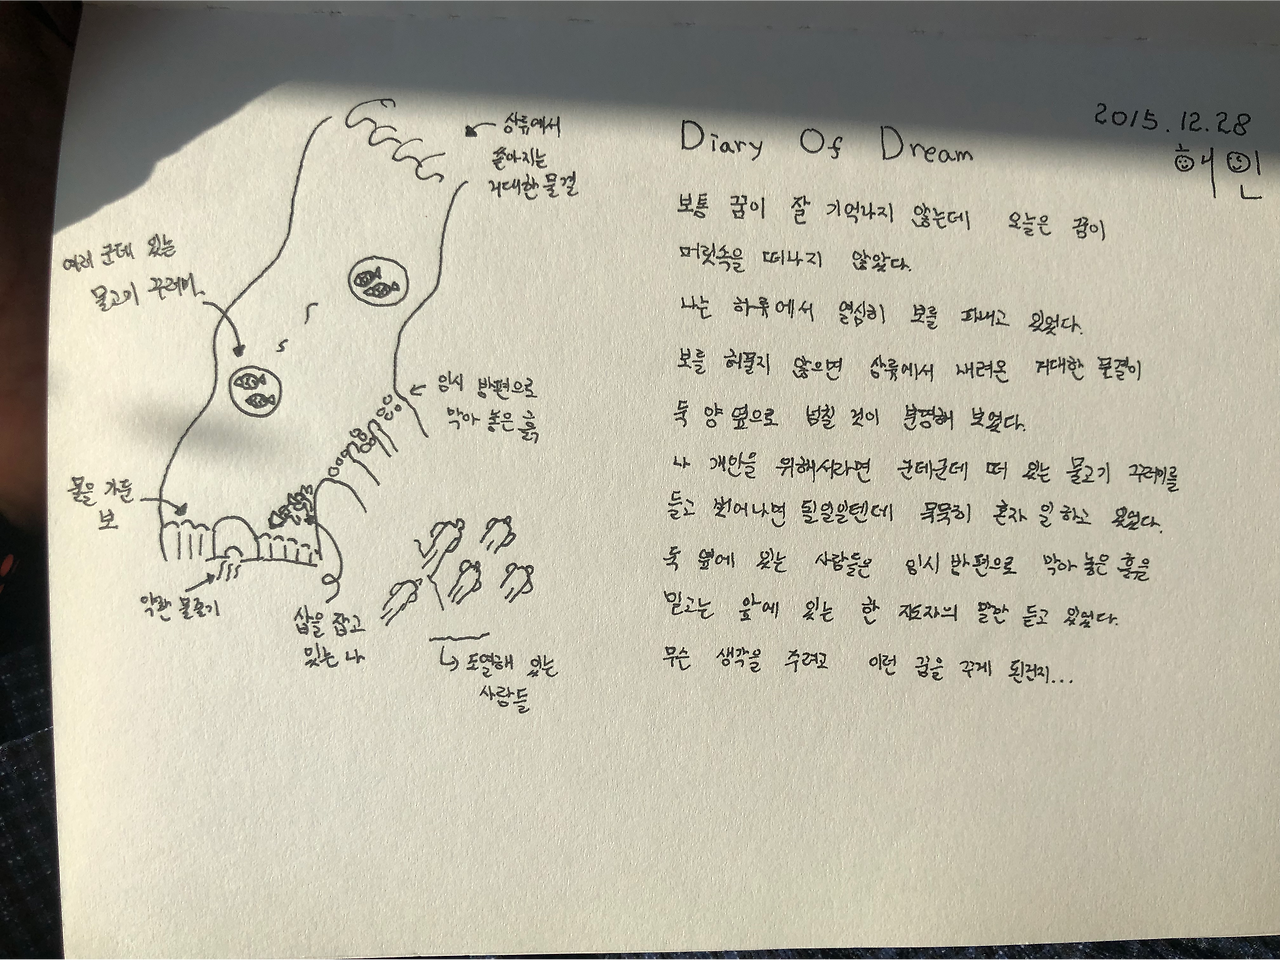 2015.12.28
혜인
Diary Of Dream
보통 꿈이 잘 기억나지 않는데 오늘은 꿈이
머릿속을 떠나지 않았다.
나는 하류에서 열심히 보를 파내고 있었다.
보를 허물지 않으면 상류에서 내려온 거대한 물결이
둑 양 옆으로 넘칠 것이 분명해 보였다.
나 개인을 위해서라면 군데군데 떠 있는 물고기 꾸러미를
들고 벗어나면 될일일텐데 묵묵히 혼자 일 하고 있었다.
둑 옆에 있는 사람들은 임시 방편으로 막아 놓은 흙을
믿고는 앞에 있는 한 지도자의 말만 듣고 있었다.
무슨 생각을 주려고 이런 꿈을 꾸게 된건지...
상류에서
쏟아지는
거대한 물결
여러 군데 있는
물고기 꾸러미.
임시 방편으로
막아 놓은 흙
물을 가둔
보
약한 물줄기
삽을 잡고
있는 나
도열해 있는
사람들